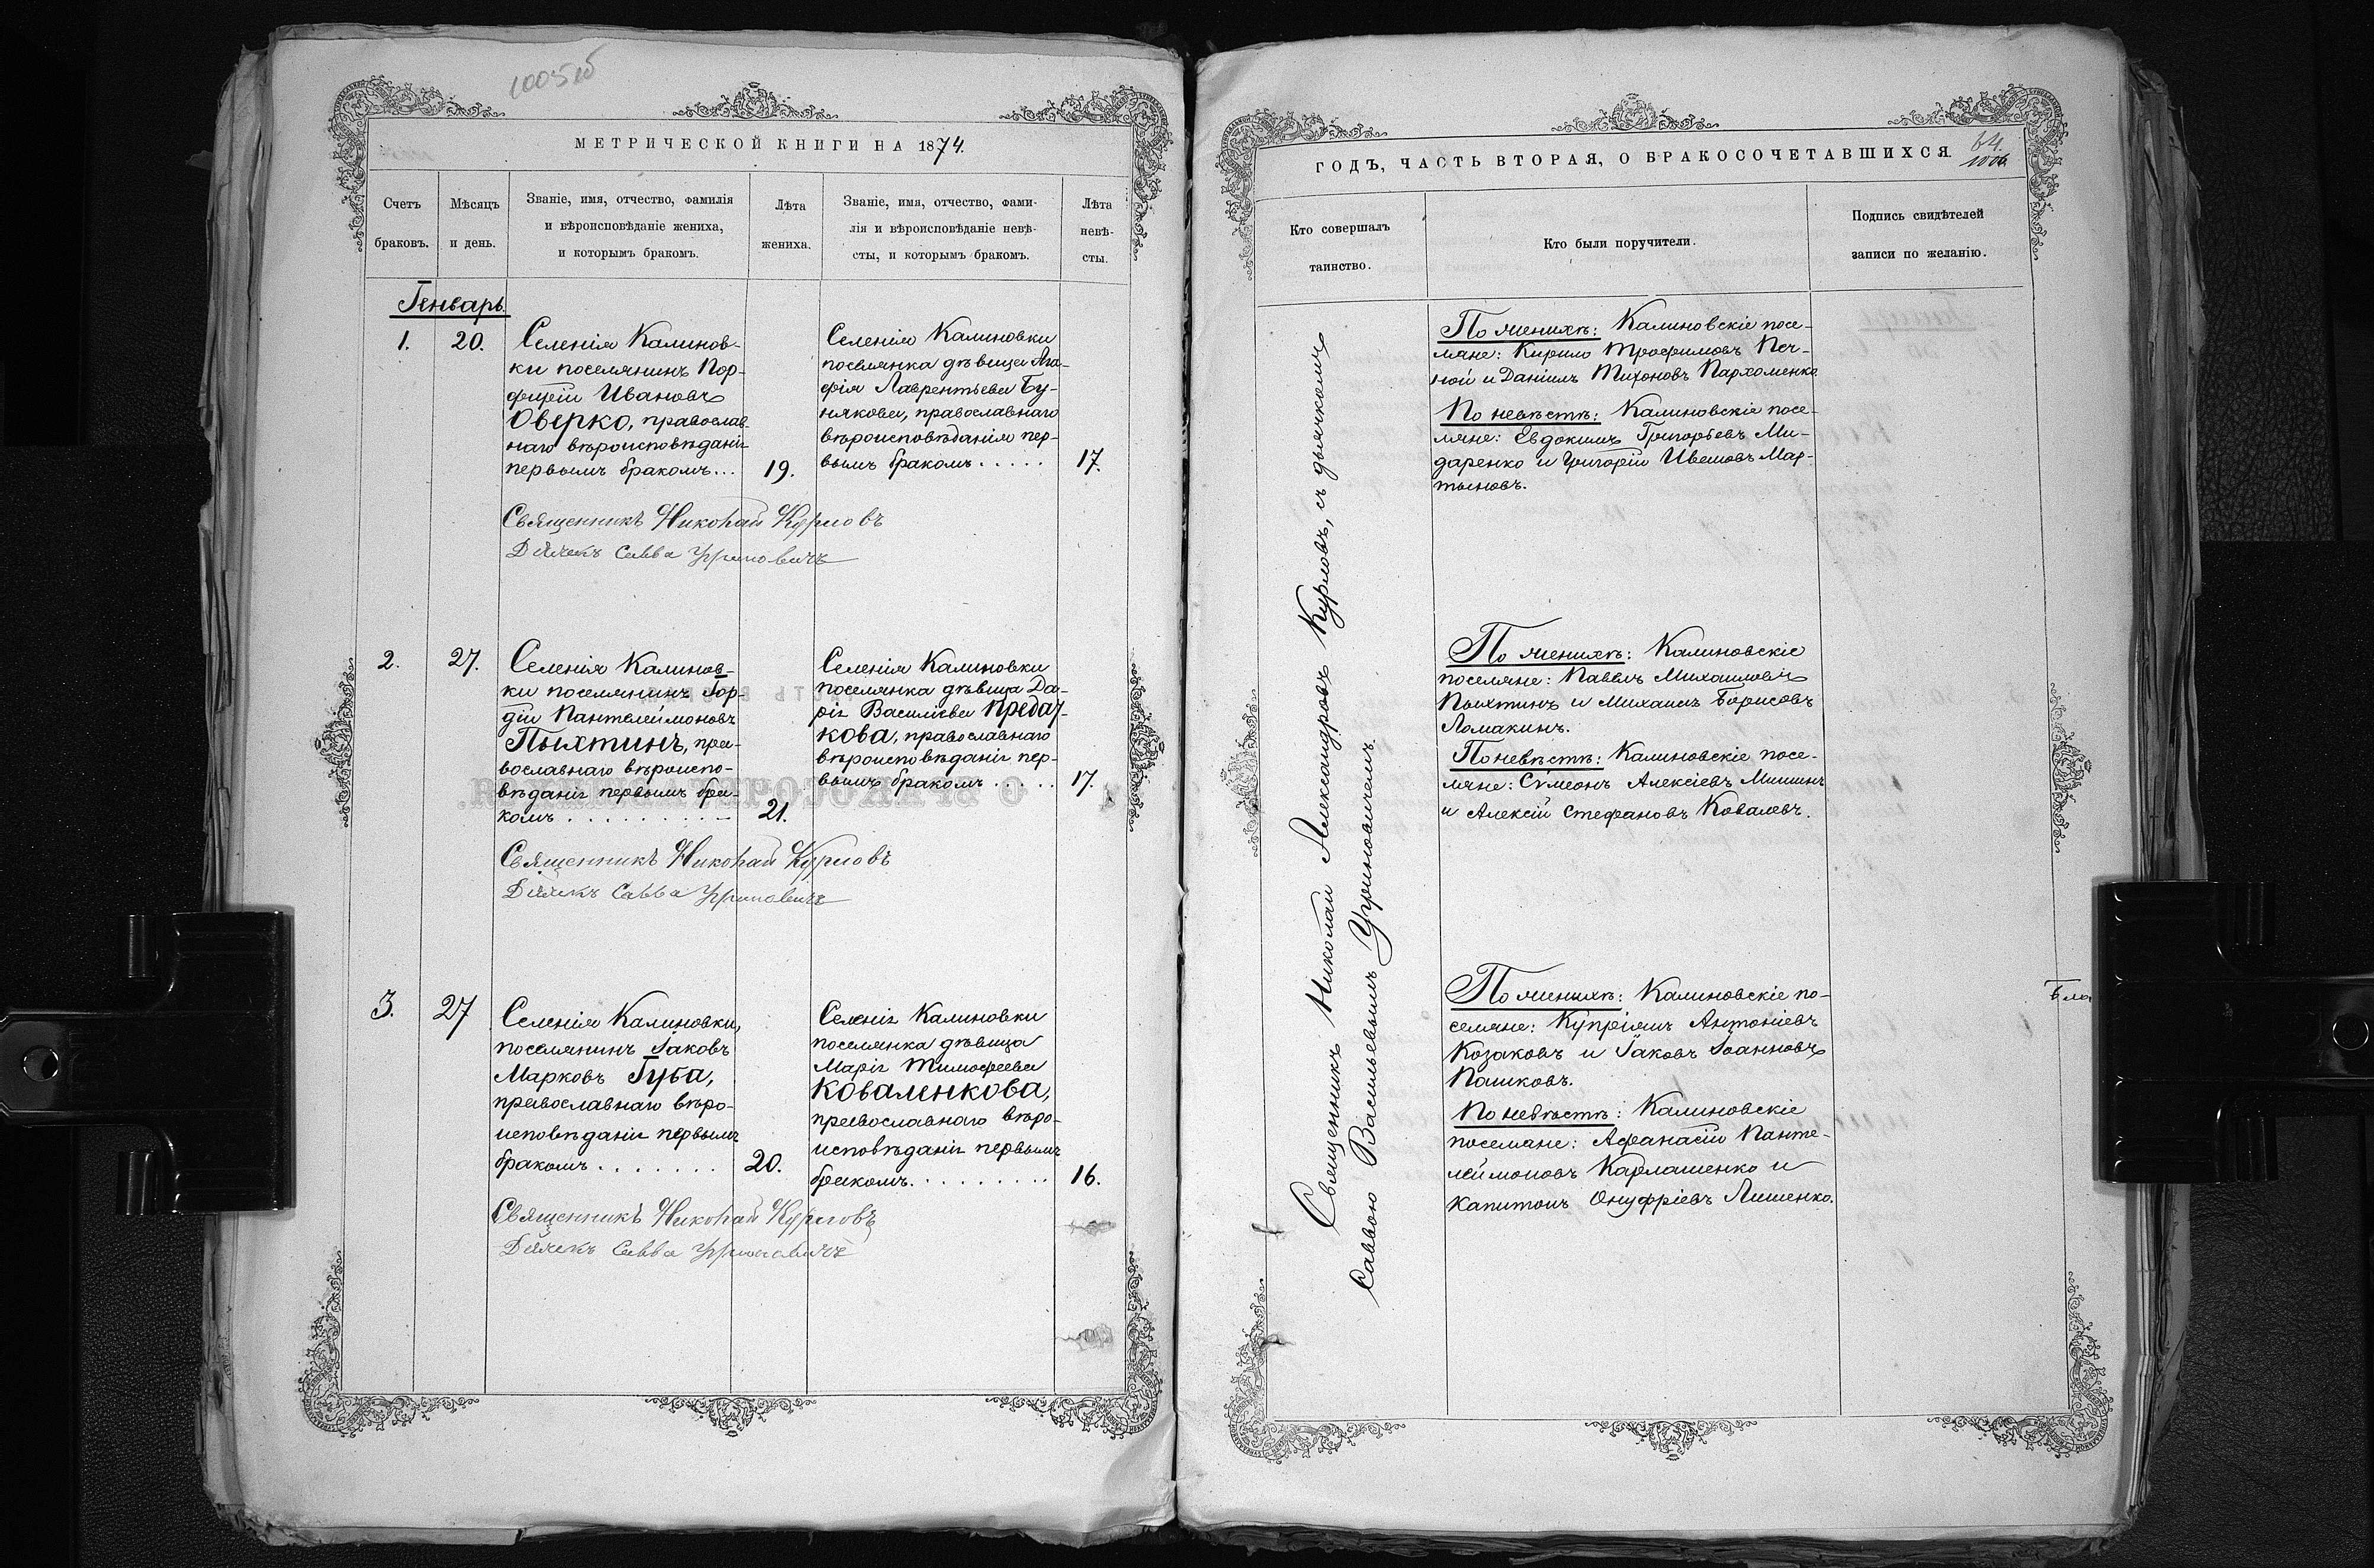 МЕТРИЧЕСКОЙ КНИГИ НА 1874.
Счетъ
браковъ.
Мѣсяцъ
и день.
Званіе, имя, отчество, фамилія
и вѣроисповѣданіе жениха,
и которымъ бракомъ.
Лѣта
жениха.
Званіе, имя, отчество, фами-
лія и вѣроисповѣданіе невѣ-
сты, и которымъ бракомъ.
Лѣта
невѣ-
сты.
Генварь
1. 20.
Селенія Калинов-
ки поселянинъ Пор-
фирій Ивановъ
Оверко, православ-
наго вѣроисповѣданія
первымъ бракомъ...
19.
Селенія Калиновки
поселянка дѣвица Ага-
фія Лаврентьева Бу-
някова, православнаго
вѣроисповѣданія пер-
вымъ бракомъ.....
17.
Священникъ Николай Курловъ
Дьячекъ Савва Угриновичъ
2. 27.
Селенія Калинов-
ки поселянинъ Гор-
дій Пантелеймоновъ
Пыхтинъ, пра-
вославнаго вѣроиспо-
вѣданія первымъ бра-
комъ.........
21.
Селенія Калиновки
поселянка дѣвица Да-
рія Василіева
кова, православнаго
вѣроисповѣданія пер-
вымъ бракомъ.....
17.
Священникъ Николай Курловъ
Дьячекъ Савва Угриновичъ
3. 27
Селенія Калиновки,
поселянинъ Іаковъ
Марковъ Губа,
православнаго вѣро-
исповѣданія первымъ
бракомъ.......
20.
Селенія Калиновки
поселянка дѣвица
Марія Тимофеева
Коваленкова,
православнаго вѣро-
исповѣданія первымъ
бракомъ.........
16.
Священникъ Николай Курловъ
Дьячекъ Савва Угриновичъ
ГОДЪ, ЧАСТЬ ВТОРАЯ, О БРАКОСОЧЕТАВШИХСЯ.
64.
1006.
Кто совершалъ
таинство.
Кто были поручители.
Подпись свидѣтелей
записи по желанію.
Священникъ Николай Александровъ Курловъ, съ дьячкомъ
Саввою Васильевымъ Угриновичемъ.
По женихѣ: Калиновскіе посе-
ляне: Кирило Трофимовъ Печ-
ной и Даніилъ Тихоновъ Пархоменко
По невѣстѣ: Калиновскіе посе-
ляне: Евдокимъ Григорьевъ Ми-
даренко и Григорій Ивановъ Мар-
тыновъ.
По женихѣ: Калиновскіе
поселяне: Павелъ Михаиловъ
Пыхтинъ и Михаилъ Борисовъ
Ломакинъ.
По невѣстѣ: Калиновскіе посе-
ляне: Сѵмеонъ Алексіевъ Мишинъ
и Алексій Стефановъ Ковалевъ.
По женихѣ: Калиновскіе по-
селяне: Кѵпріянъ Антоніевъ
Козаковъ и Іаковъ Іоанновъ
Пашковъ.
По невѣстѣ: Калиновскіе
поселяне: Афанасій Панте-
леймоновъ Карлашенко и
Капитонъ Онуфріевъ Лишенко.